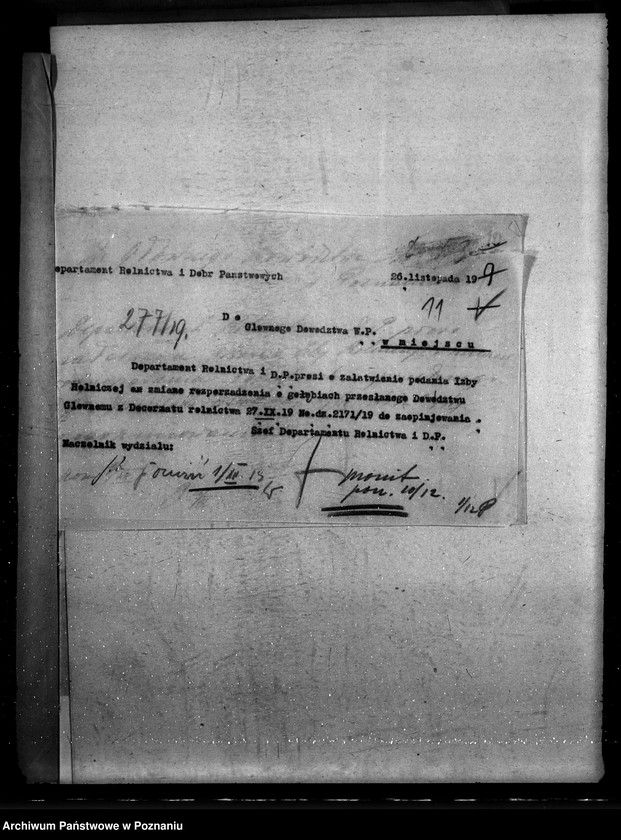 epartament Relnictwa i Debr Panstwowych
26.listopada 19
11
277/19.
D e
Glewnege Dewedztwa W.P.
w miejscu
Departament Relnictwa i D.P.presi e zalatwienie pedania Izby
Relniczej em zmiane rezperzadzenia e gelębiach przeslanege Dewedztwu
Glewnemu z Decernatu relnictwa 27.IX.19 Ne.dz.2171/19 de zaepinjewania .
Szef Departamentu Relnictwa i D.P.
Naczelnik wydzialu:
monit
pon. 10/12.
1/12